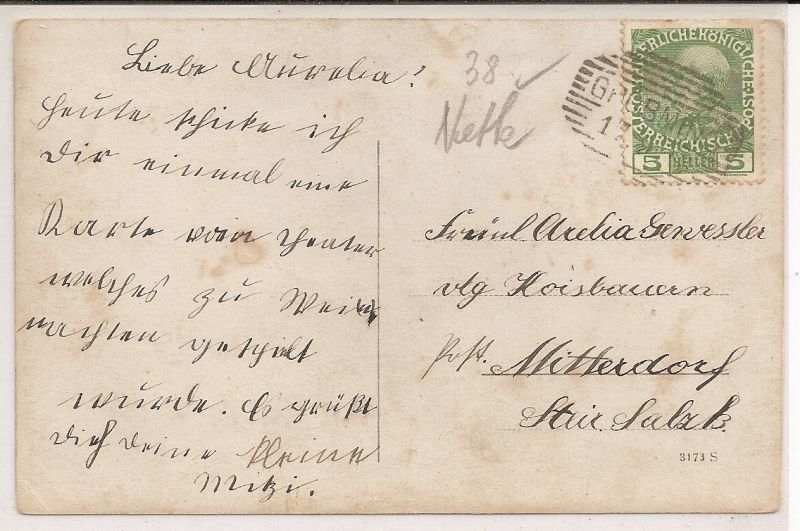 Liebe Aurelia!
heute schicke ich
Dir einmal eine
Karte vom Theater
welches zu Weih
nachten gespielt
wurde. Es grüßt
Dich Deine kleine
Mitzi.
38
GRÖBMING
KAISERLICHEKÖNIGLICHE
ÖSTERREICHISCHE
5 HELLER 5
Freinl Arelia Gewessler
vlg Hoisbauern
Post. Mitterdorf
Steir Salzk.
3173 S